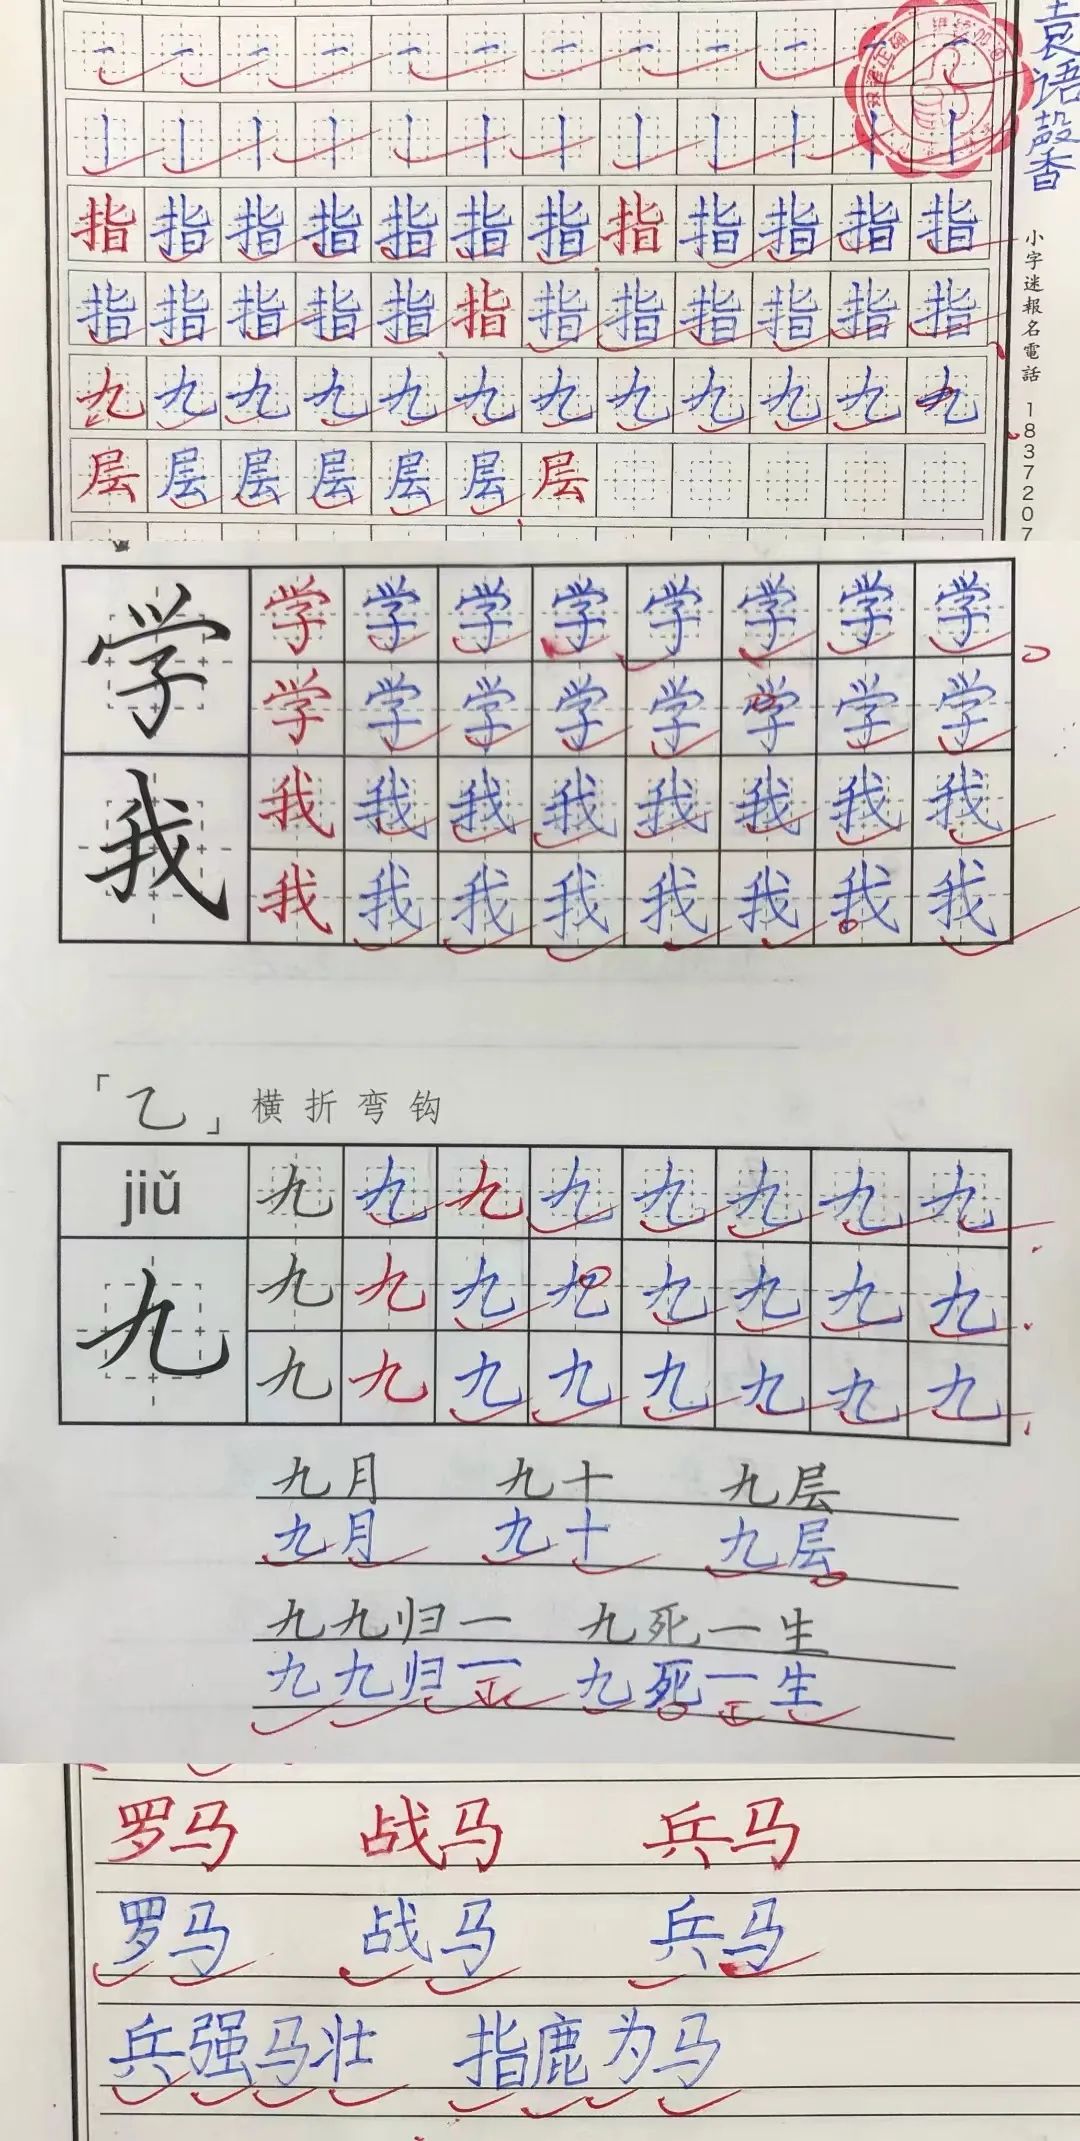 一一一一一一一一一一一一
丨丨丨丨丨丨丨丨丨丨丨丨
指指指指指指指指指指指指
指指指指指指指指指指指指
九九九九九九九九九九九九
层层层层层层层
袁语馨
小字迷報名電話 1837207
学 学学学学学学学学
学学学学学学学学
我 我我我我我我我我
我我我我我我我我
「乙」横折弯钩
jiǔ 九九九九九九九九
九 九九九九九九九九
九九九九九九九九
九月 九十 九层
九月 九十 九层
九九归一 九死一生
九九归一 九死一生
正 正
罗马 战马 兵马
罗马 战马 兵马
兵强马壮 指鹿为马